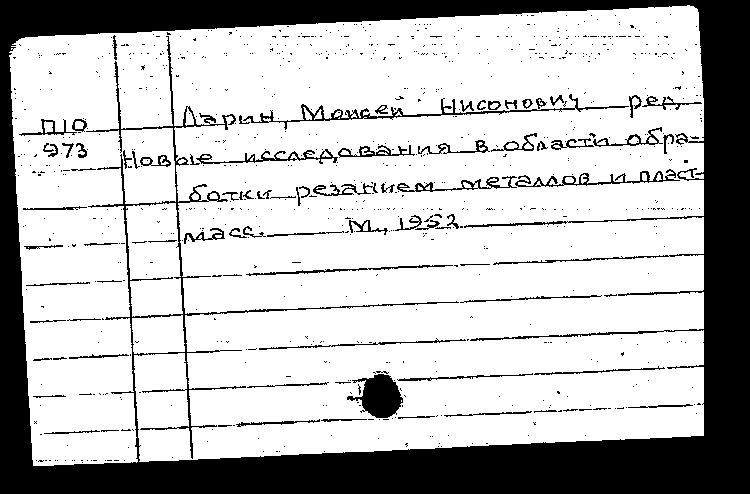 П10 Ларин, Моисей Нисонович ред.
973 Новые исследования в области обра-
ботки резанием металлов и пласт-
масс. М., 1952